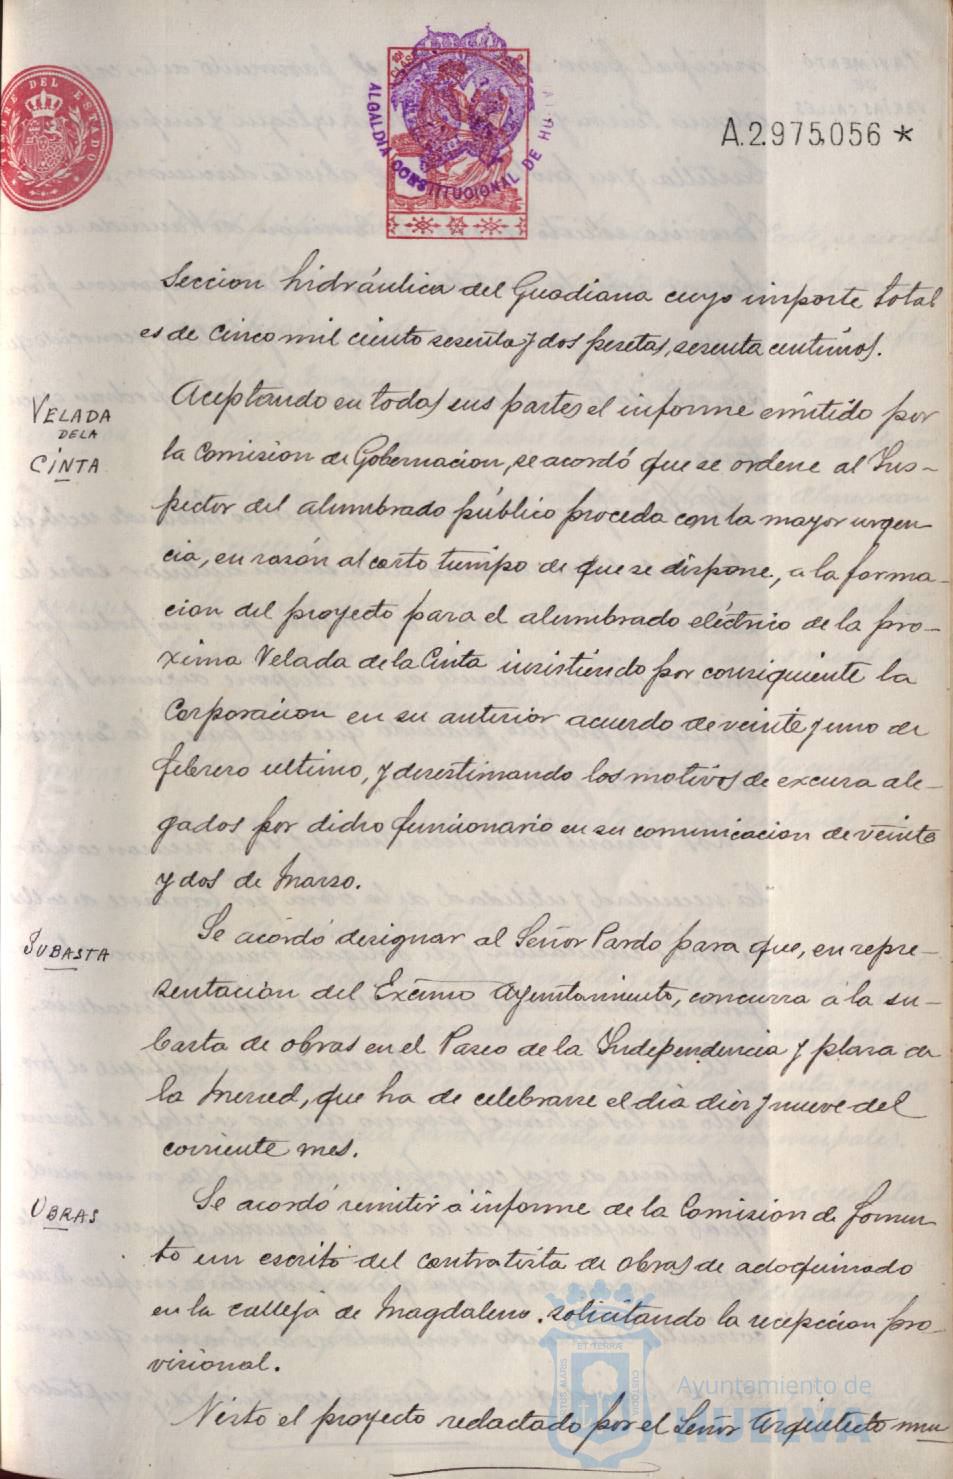 TIMBRE DEL ESTADO
ALCALDIA CONSTITUCIONAL DE HUELVA
A.2.975,056 *
Seccion hidráulica del Guadiana cuyo importe total
es de cinco mil ciento sesenta y dos pesetas, sesenta centimos.
VELADA
DE LA
CINTA
Aceptando en todas sus partes el informe emitido por
la Comision de Gobernacion, se acordó que se ordene al Ins-
pector del alumbrado público proceda con la mayor urgen-
cia, en razón al corto tiempo de que se dispone, a la forma-
cion del proyecto para el alumbrado eléctrico de la pro-
xima Velada de la Cinta insistiendo por consiguiente la
Corporacion en su anterior acuerdo de veinte y uno de
febrero ultimo, y desestimando los motivos de excusa ale-
gados por dicho funcionario en su comunicacion de veinte
y dos de Marzo.
SUBASTA
Se acordó designar al Señor Pardo para que, en repre-
sentacion del Excmo Ayuntamiento, concurra á la su-
basta de obras en el Paseo de la Independencia y plaza de
la Merced, que ha de celebrarse el dia diez y nueve del
corriente mes.
OBRAS
Se acordó remitir á informe de la Comision de Fomen-
to un escrito del contratista de obras de adoquinado
en la calleja de Magdaleno, solicitando la recepcion pro-
visional.
Visto el proyecto redactado por el Señor Arquitecto mu-
ET TERRÆ
PORTUS MARIS
CUSTODIA
Ayuntamiento de
HUELVA